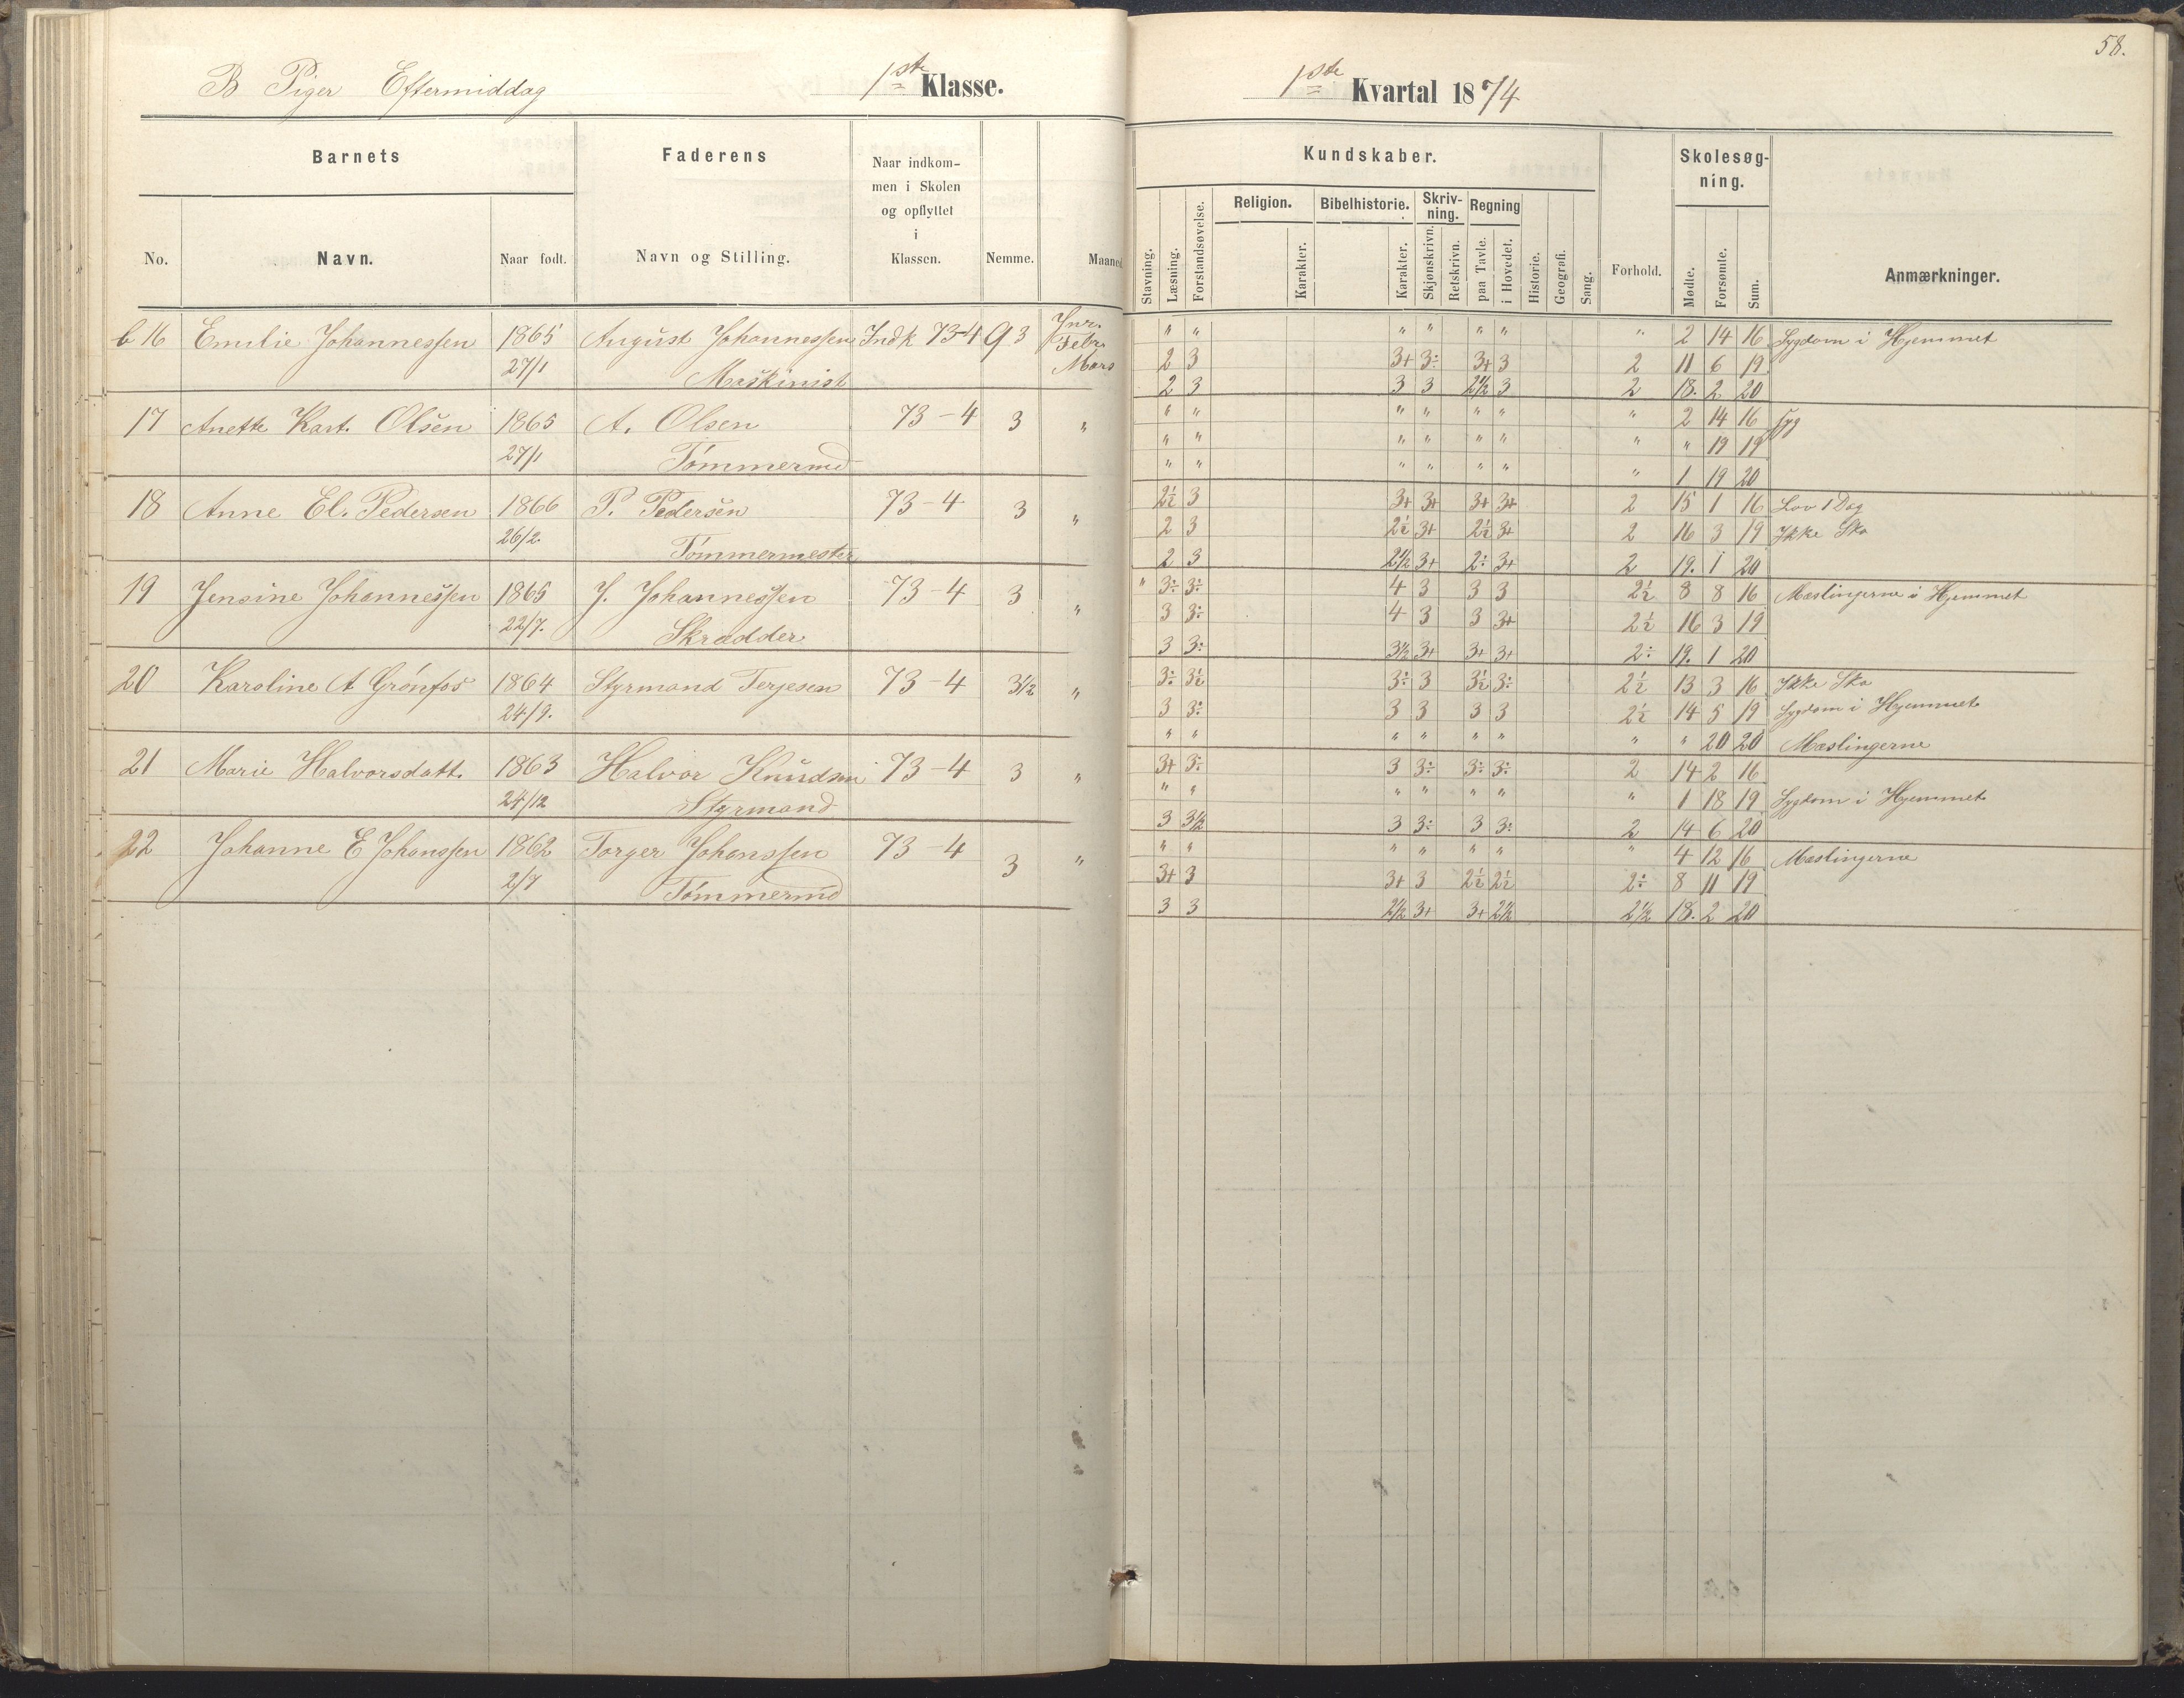 58.
B Piger Eftermiddag 1ste Klasse.
1ste Kvartal 1874
Barnets Faderens Naar indkom-
men i Skolen
og opflyttet
i
Klassen.
No. Navn. Naar født. Navn og Stilling. Nemme. Maaned
Kundskaber. Skolesøg-
ning.
Religion. Bibelhistorie. Skriv-
ning. Regning
Stavning. Læsning. Forstandsøvelse. Karakter. Karakter. Skjønskrivn. Retskrivn. paa Tavle. i Hovedet. Historie. Geografi. Sang. Forhold. Mødte. Forsømte. Sum. Anmærkninger.
b 16 Emilie Johannessen 1865 August Johannessen Indk 73-4 3 Jnr.
Febr.
27/1 Maskinist Mars
" " " " " " " 2 14 16 Sygdom i Hjemmet
2 3 3+ 3÷ 3+ 3 2 11 6 19
2 3 3 3 2½ 3 2 18. 2 20
17 Anette Kast. Olsen 1865 A. Olsen 73-4 3 "
27/1 Tømmermd
" " " " " " " 2 14 16 syg
" " " " " " " " 19 19
" " " " " " " 1 19 20
18 Anne El. Pedersen 1866 P. Pedersen 73-4 3 "
26/2. Tømmermester
2½ 3 3+ 3+ 3+ 3+ 2 15 1 16 Lov 1 Dag
2 3 2½ 3+ 2½ 3+ 2 16 3 19 Ikke Sko
2 3 2½ 3+ 2÷ 3+ 2 19. 1 20
19 Jensine Johannessen 1865 J. Johannessen 73-4 3 "
22/7. Skrædder
" 3÷ 3÷ 4 3 3 3 2½ 8 8 16 Mæslingerne i Hjemmet
3 3÷ 4 3 3 3+ 2½ 16 3 19
3 3÷ 3½ 3+ 3+ 3+ 2÷ 19. 1 20
20 Karoline A Grønfos 1864 Styrmand Terjesen 73-4 3½ "
24/9.
3÷ 3½ 3÷ 3 3½ 3÷ 2½ 13 3 16 Ikke Sko
3 3÷ 3 3 3 3 2½ 14 5 19 Sygdom i Hjemmet
" " " " " " " " 20 20 Mæslingerne
21 Marie Halvorsdatt. 1863 Halvor Knudsen 73-4 3 "
24/12 Styrmand
3+ 3÷ 3 3÷ 3÷ 3÷ 2 14 2 16
" " " " " " " 1 18 19 Sygdom i Hjemmet
3 3½ 3 3÷ 3 3÷ 2 14 6 20
22 Johanne E Johanssen 1862 Torger Johanssen 73-4 3 "
2/7 Tømmermd
" " " " " " " 4 12 16 Mæslingerne
3+ 3 3+ 3 2½ 2½ 2÷ 8 11 19
3 3 2½ 3+ 3+ 2½ 2½ 18. 2 20